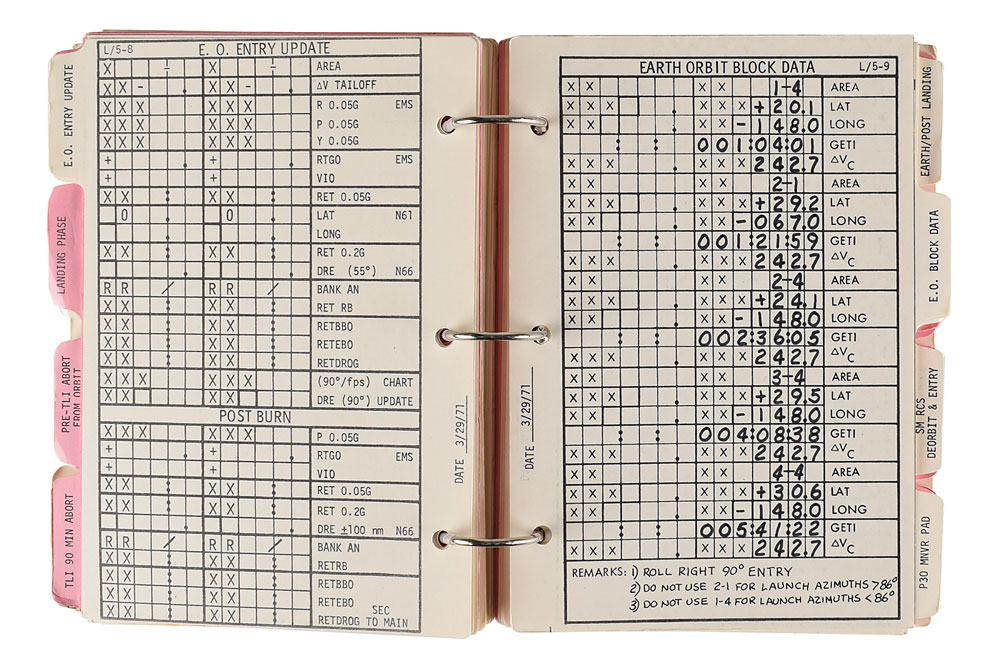 E. O. ENTRY UPDATE
LANDING PHASE
PRE-TLI ABORT
FROM ORBIT
TLI 90 MIN ABORT
L/5-8 E. O. ENTRY UPDATE
X - X - AREA
X X - . X X - . ΔV TAILOFF
X X X X X X R 0.05G EMS
X X X X X X P 0.05G
X X X X X X Y 0.05G
+ . + . RTGO EMS
+ + VIO
X X : X X : RET 0.05G
0 0 LAT N61
LONG
X X : X X : RET 0.2G
. . DRE (55°) N66
R R / R R / BANK AN
X X : X X : RET RB
X X : X X : RETBBO
X X : X X : RETEBO
X X : X X : RETDROG
X X X X X X (90°/fps) CHART
X X . X X . DRE (90°) UPDATE
POST BURN
X X X X X X P 0.05G
+ . + . RTGO EMS
+ + VIO
X X : X X : RET 0.05G
X X : X X : RET 0.2G
. . DRE ±100 nm N66
R R / R R / BANK AN
X X : X X : RETRB
X X : X X : RETBBO
X X : X X : RETEBO
SEC
X X : X X : RETDROG TO MAIN
DATE 3/29/71
DATE 3/29/71
EARTH ORBIT BLOCK DATA L/5-9
X X X X 1-4 AREA
X X X . X X X +20.1 LAT
X X . X X -148.0 LONG
: : 001:04:01 GETI
X X X . X X X 242.7 ΔVC
X X X X 2-1 AREA
X X X . X X X +29.2 LAT
X X . X X -067.0 LONG
: : 001:21:59 GETI
X X X . X X X 242.7 ΔVC
X X X X 2-4 AREA
X X X . X X X +24.1 LAT
X X . X X -148.0 LONG
: : 002:36:05 GETI
X X X . X X X 242.7 ΔVC
X X X X 3-4 AREA
X X X . X X X +29.5 LAT
X X . X X -148.0 LONG
: : 004:08:38 GETI
X X X . X X X 242.7 ΔVC
X X X X 4-4 AREA
X X X . X X X +30.6 LAT
X X . X X -148.0 LONG
: : 005:41:22 GETI
X X X . X X X 242.7 ΔVC
REMARKS: 1) ROLL RIGHT 90° ENTRY
2) DO NOT USE 2-1 FOR LAUNCH AZIMUTHS >86°
3) DO NOT USE 1-4 FOR LAUNCH AZIMUTHS <86°
EARTH/POST LANDING
E.O. BLOCK DATA
SM RCS
DEORBIT & ENTRY
P30 MNVR PAD